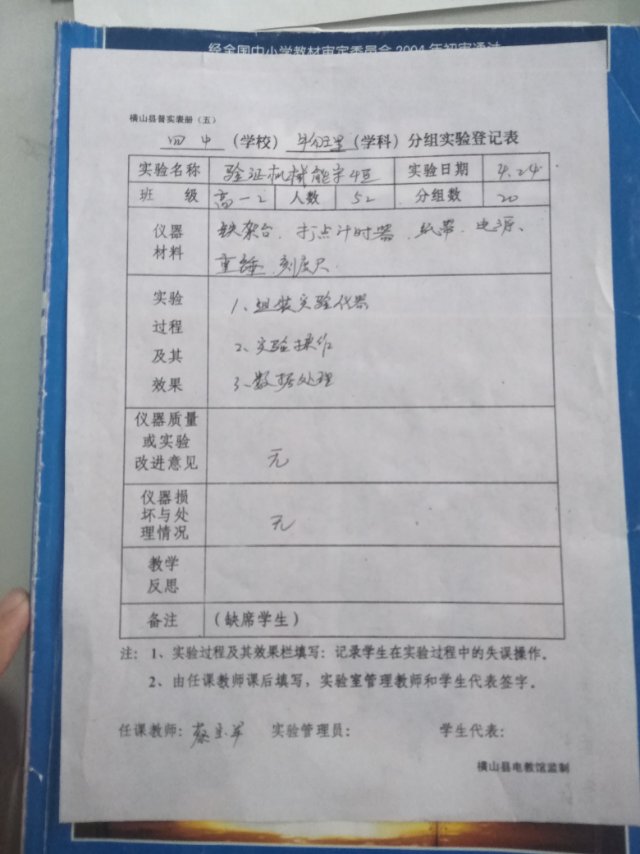 经全国中小学教材审定委员会2004年初审通过
横山县普实表册（五）
四中（学校）物理（学科）分组实验登记表
实验名称 验证机械能守恒 实验日期 4.24
班级 高一2 人数 52 分组数 20
仪器材料 铁架台、打点计时器、纸带、电源、
重锤、刻度尺.
实验过程及其效果
1、组装实验仪器
2、实验操作
3、数据处理
仪器质量或实验改进意见 无
仪器损坏与处理情况 无
教学反思
备注 （缺席学生）
注：1、实验过程及其效果栏填写：记录学生在实验过程中的失误操作。
2、由任课教师课后填写，实验室管理教师和学生代表签字。
任课教师： 实验管理员： 学生代表：
横山县电教馆监制